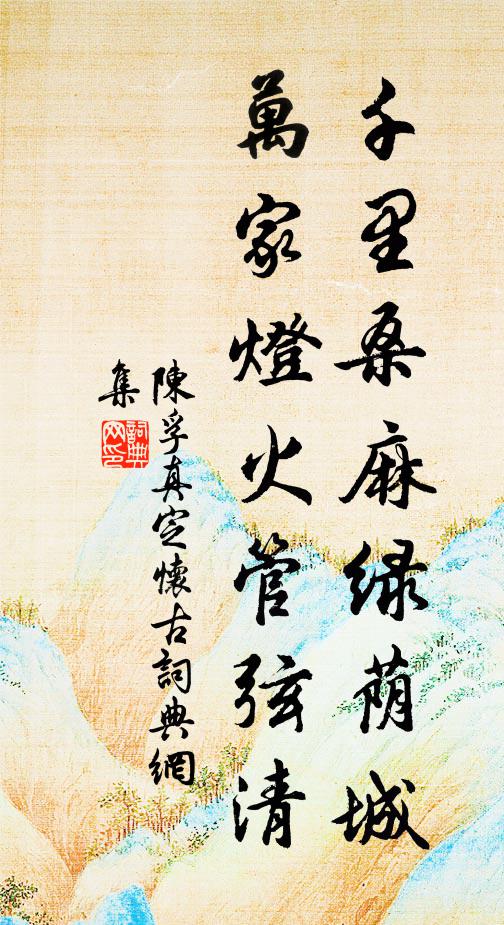 千里桑麻绿荫城
萬家燈火管弦清
陳孚真定懷古詞典網
集
詞典
网印